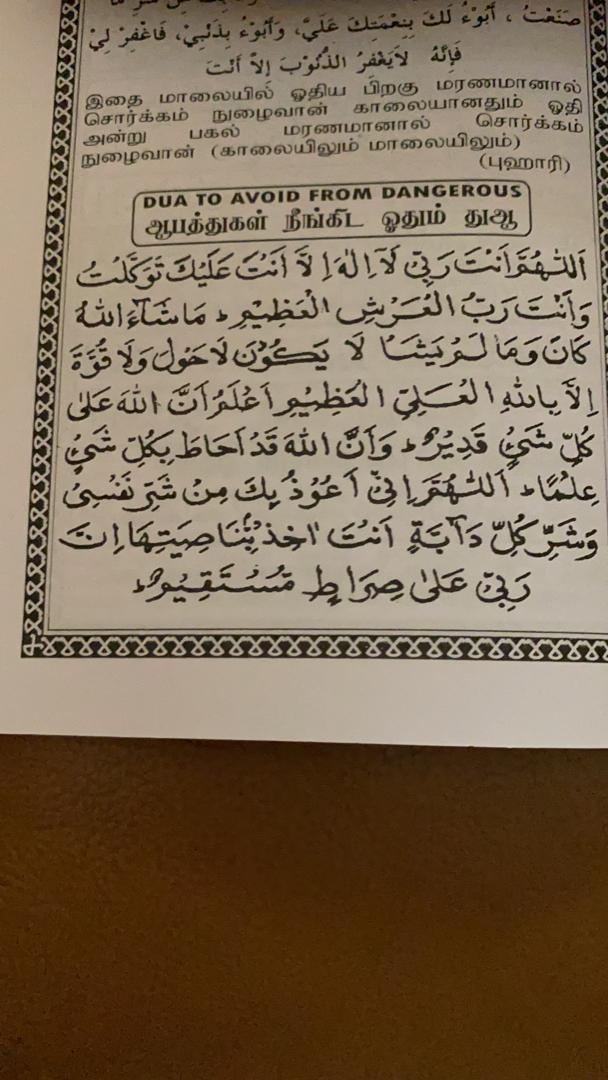 صَنَعْتُ ، أَبُوْءُ لَكَ بِنِعْمَتِكَ عَلَيَّ، وَأَبُوْءُ بِذَنْبِيْ، فَاغْفِرْ لِيْ
فَإِنَّهُ لاَيَغْفِرُ الذُّنُوْبَ إِلاَّ أَنْتَ
இதை மாலையில் ஓதிய பிறகு மரணமானால்
சொர்க்கம் நுழைவான் காலையானதும் ஓதி
அன்று பகல் மரணமானால் சொர்க்கம்
நுழைவான் (காலையிலும் மாலையிலும்)
(புஹாரி)
DUA TO AVOID FROM DANGEROUS
ஆபத்துகள் நீங்கிட ஓதும் துஆ
اَللّٰهُمَّ اَنْتَ رَبِّيْ لَآ اِلٰهَ اِلَّا اَنْتَ عَلَيْكَ تَوَكَّلْتُ
وَاَنْتَ رَبُّ الْعَرْشِ الْعَظِيْمِ ۔ مَا شَآءَ اللهُ
كَانَ وَمَا لَمْ يَشَا لَا يَكُوْنَ لَا حَوْلَ وَلَا قُوَّةَ
اِلَّا بِاللهِ الْعَلِيِّ الْعَظِيْمِ اَعْلَمُ اَنَّ اللهَ عَلٰى
كُلِّ شَيْءٍ قَدِيْرٌ ۔ وَاَنَّ اللهَ قَدْ اَحَاطَ بِكُلِّ شَيْءٍ
عِلْمًا ۔ اَللّٰهُمَّ اِنِّيْ اَعُوْذُ بِكَ مِنْ شَرِّ نَفْسِيْ
وَشَرِّ كُلِّ دَآبَّةٍ اَنْتَ اٰخِذٌ بِنَاصِيَتِهَا اِنَّ
رَبِّيْ عَلٰى صِرَاطٍ مُسْتَقِيْمٍ ۔